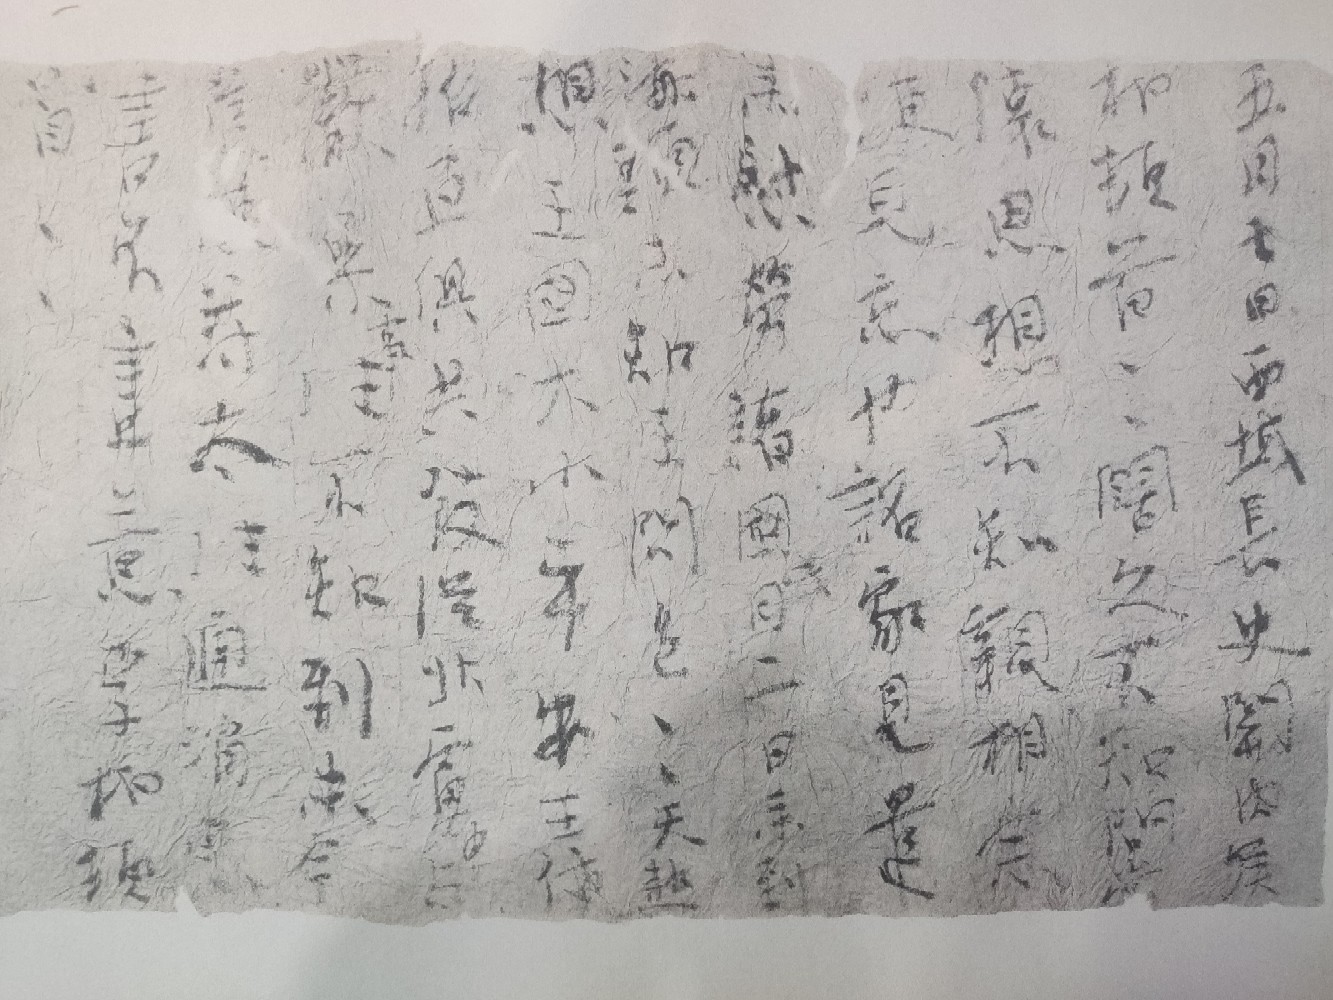 五月七日西域長史關內侯
柏頓首々々闊久不知問
懷思想不知親相念
便見忘也詔家見遣
來慰勞諸國月二日來到
海頭未知王問邑々天熱
想王國大小平安王使
招亘俱共發從北虜中與
嚴參事往不知到未今
遣使符大往通消息
書不盡意李柏頓
首々々